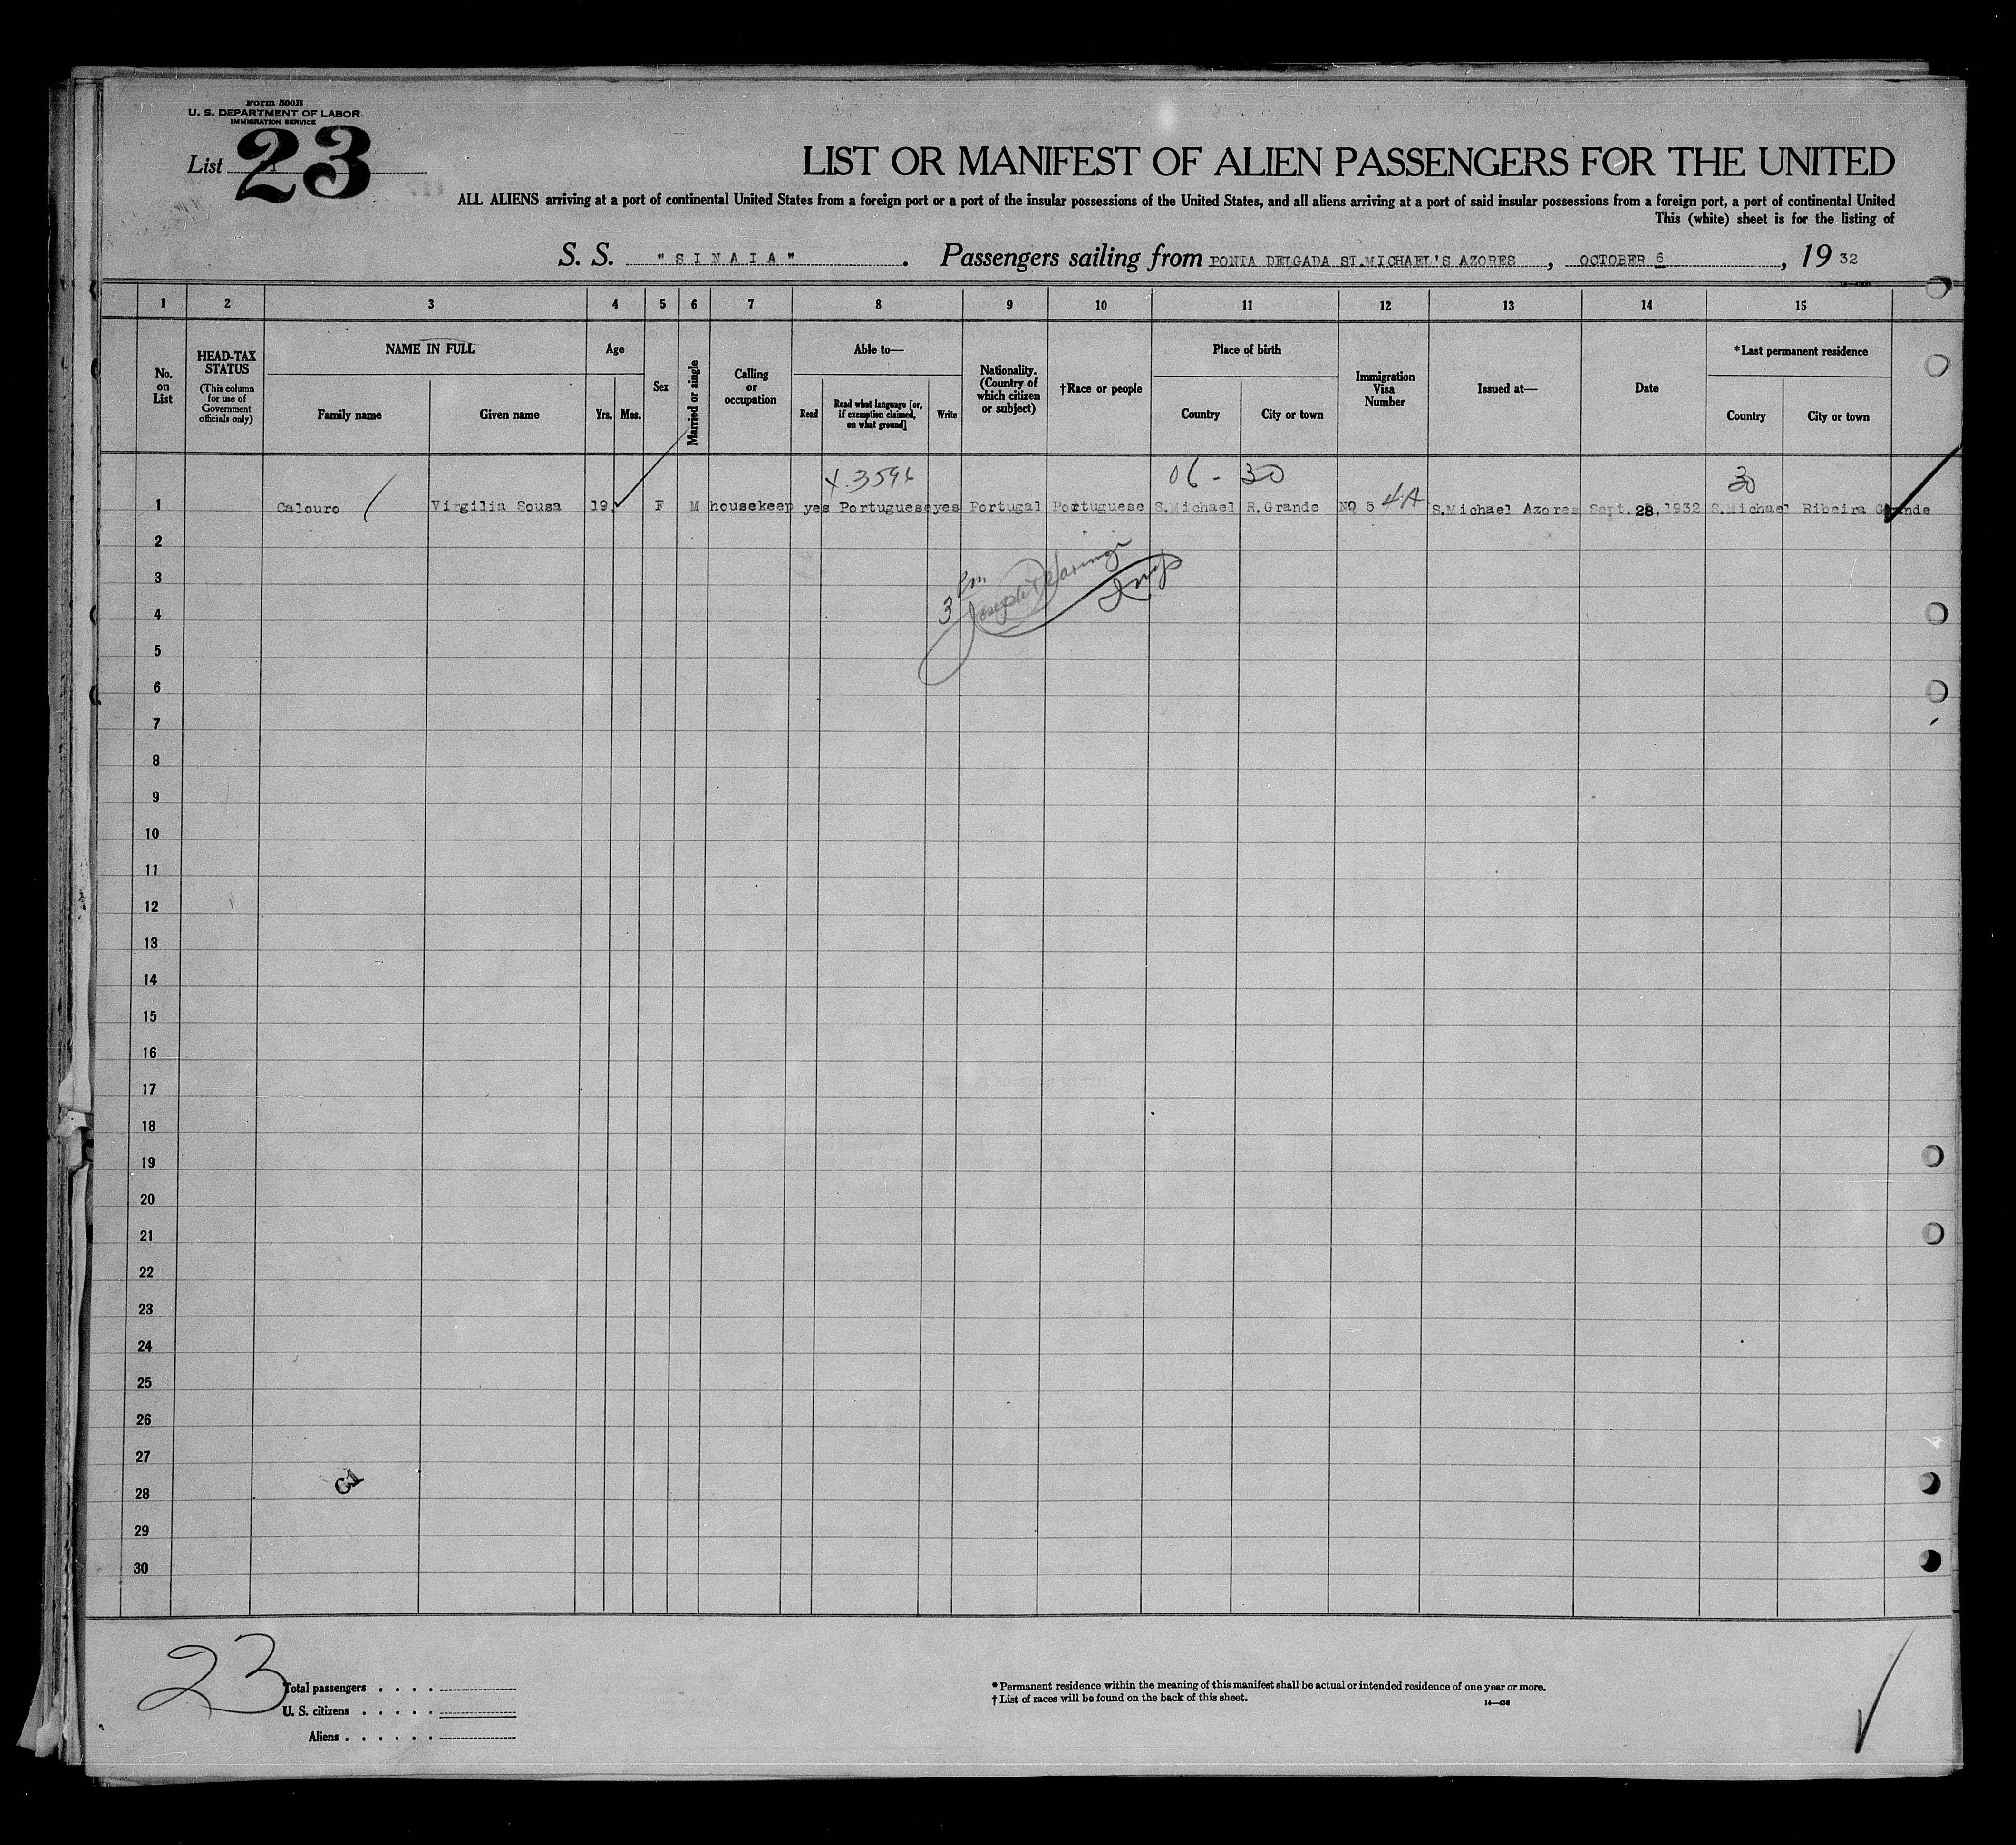 Form 500B
U. S. DEPARTMENT OF LABOR
IMMIGRATION SERVICE
List 23
LIST OR MANIFEST OF ALIEN PASSENGERS FOR THE UNITED
ALL ALIENS arriving at a port of continental United States from a foreign port or a port of the insular possessions of the United States, and all aliens arriving at a port of said insular possessions from a foreign port, a port of continental United
This (white) sheet is for the listing of
S. S. "SINAIA". Passengers sailing from PONTA DELGADA ST.MICHAEL'S AZORES, OCTOBER 6, 1932
1 2 3 4 5 6 7 8 9 10 11 12 13 14 15
No. on List
HEAD-TAX STATUS
(This column for use of Government officials only)
NAME IN FULL
Family name
Given name
Age
Yrs.
Mos.
Sex
Married or single
Calling or occupation
Able to—
Read
Read what language [or, if exemption claimed, on what ground]
Write
Nationality. (Country of which citizen or subject)
†Race or people
Place of birth
Country
City or town
Immigration Visa Number
Issued at—
Date
*Last permanent residence
Country
City or town
06 - 30 30
1 Calouro Virgilia Sousa 19 F M housekeep yes Portuguese yes Portugal Portuguese S.Michael R.Grande NQ 5 4A S.Michael Azores Sept.28,1932 S.Michael Ribeira Grande
2
3
3 Pm
4
5
6
7
8
9
10
11
12
13
14
15
16
17
18
19
20
21
22
23
24
25
26
27
G1
28
29
30
23
Total passengers . . . .
U. S. citizens . . . . .
Aliens . . . . . .
* Permanent residence within the meaning of this manifest shall be actual or intended residence of one year or more.
† List of races will be found on the back of this sheet.